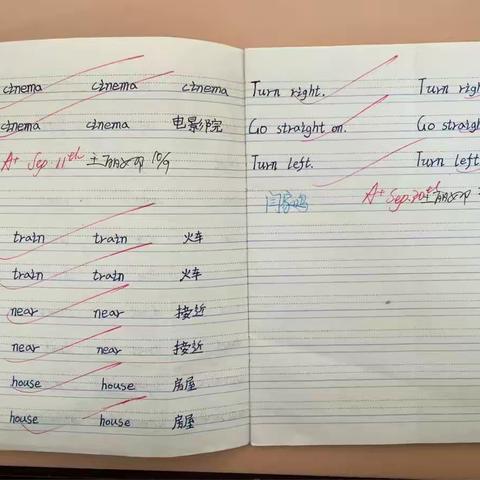 cinema cinema cinema
cinema cinema 电影院
A+ Sep. 11th
train train 火车
train train 火车
near near 接近
near near 接近
house house 房屋
house house 房屋
Turn right. Turn right
Go straight on. Go straigh
Turn left. Turn left
A+ Sep. 20th